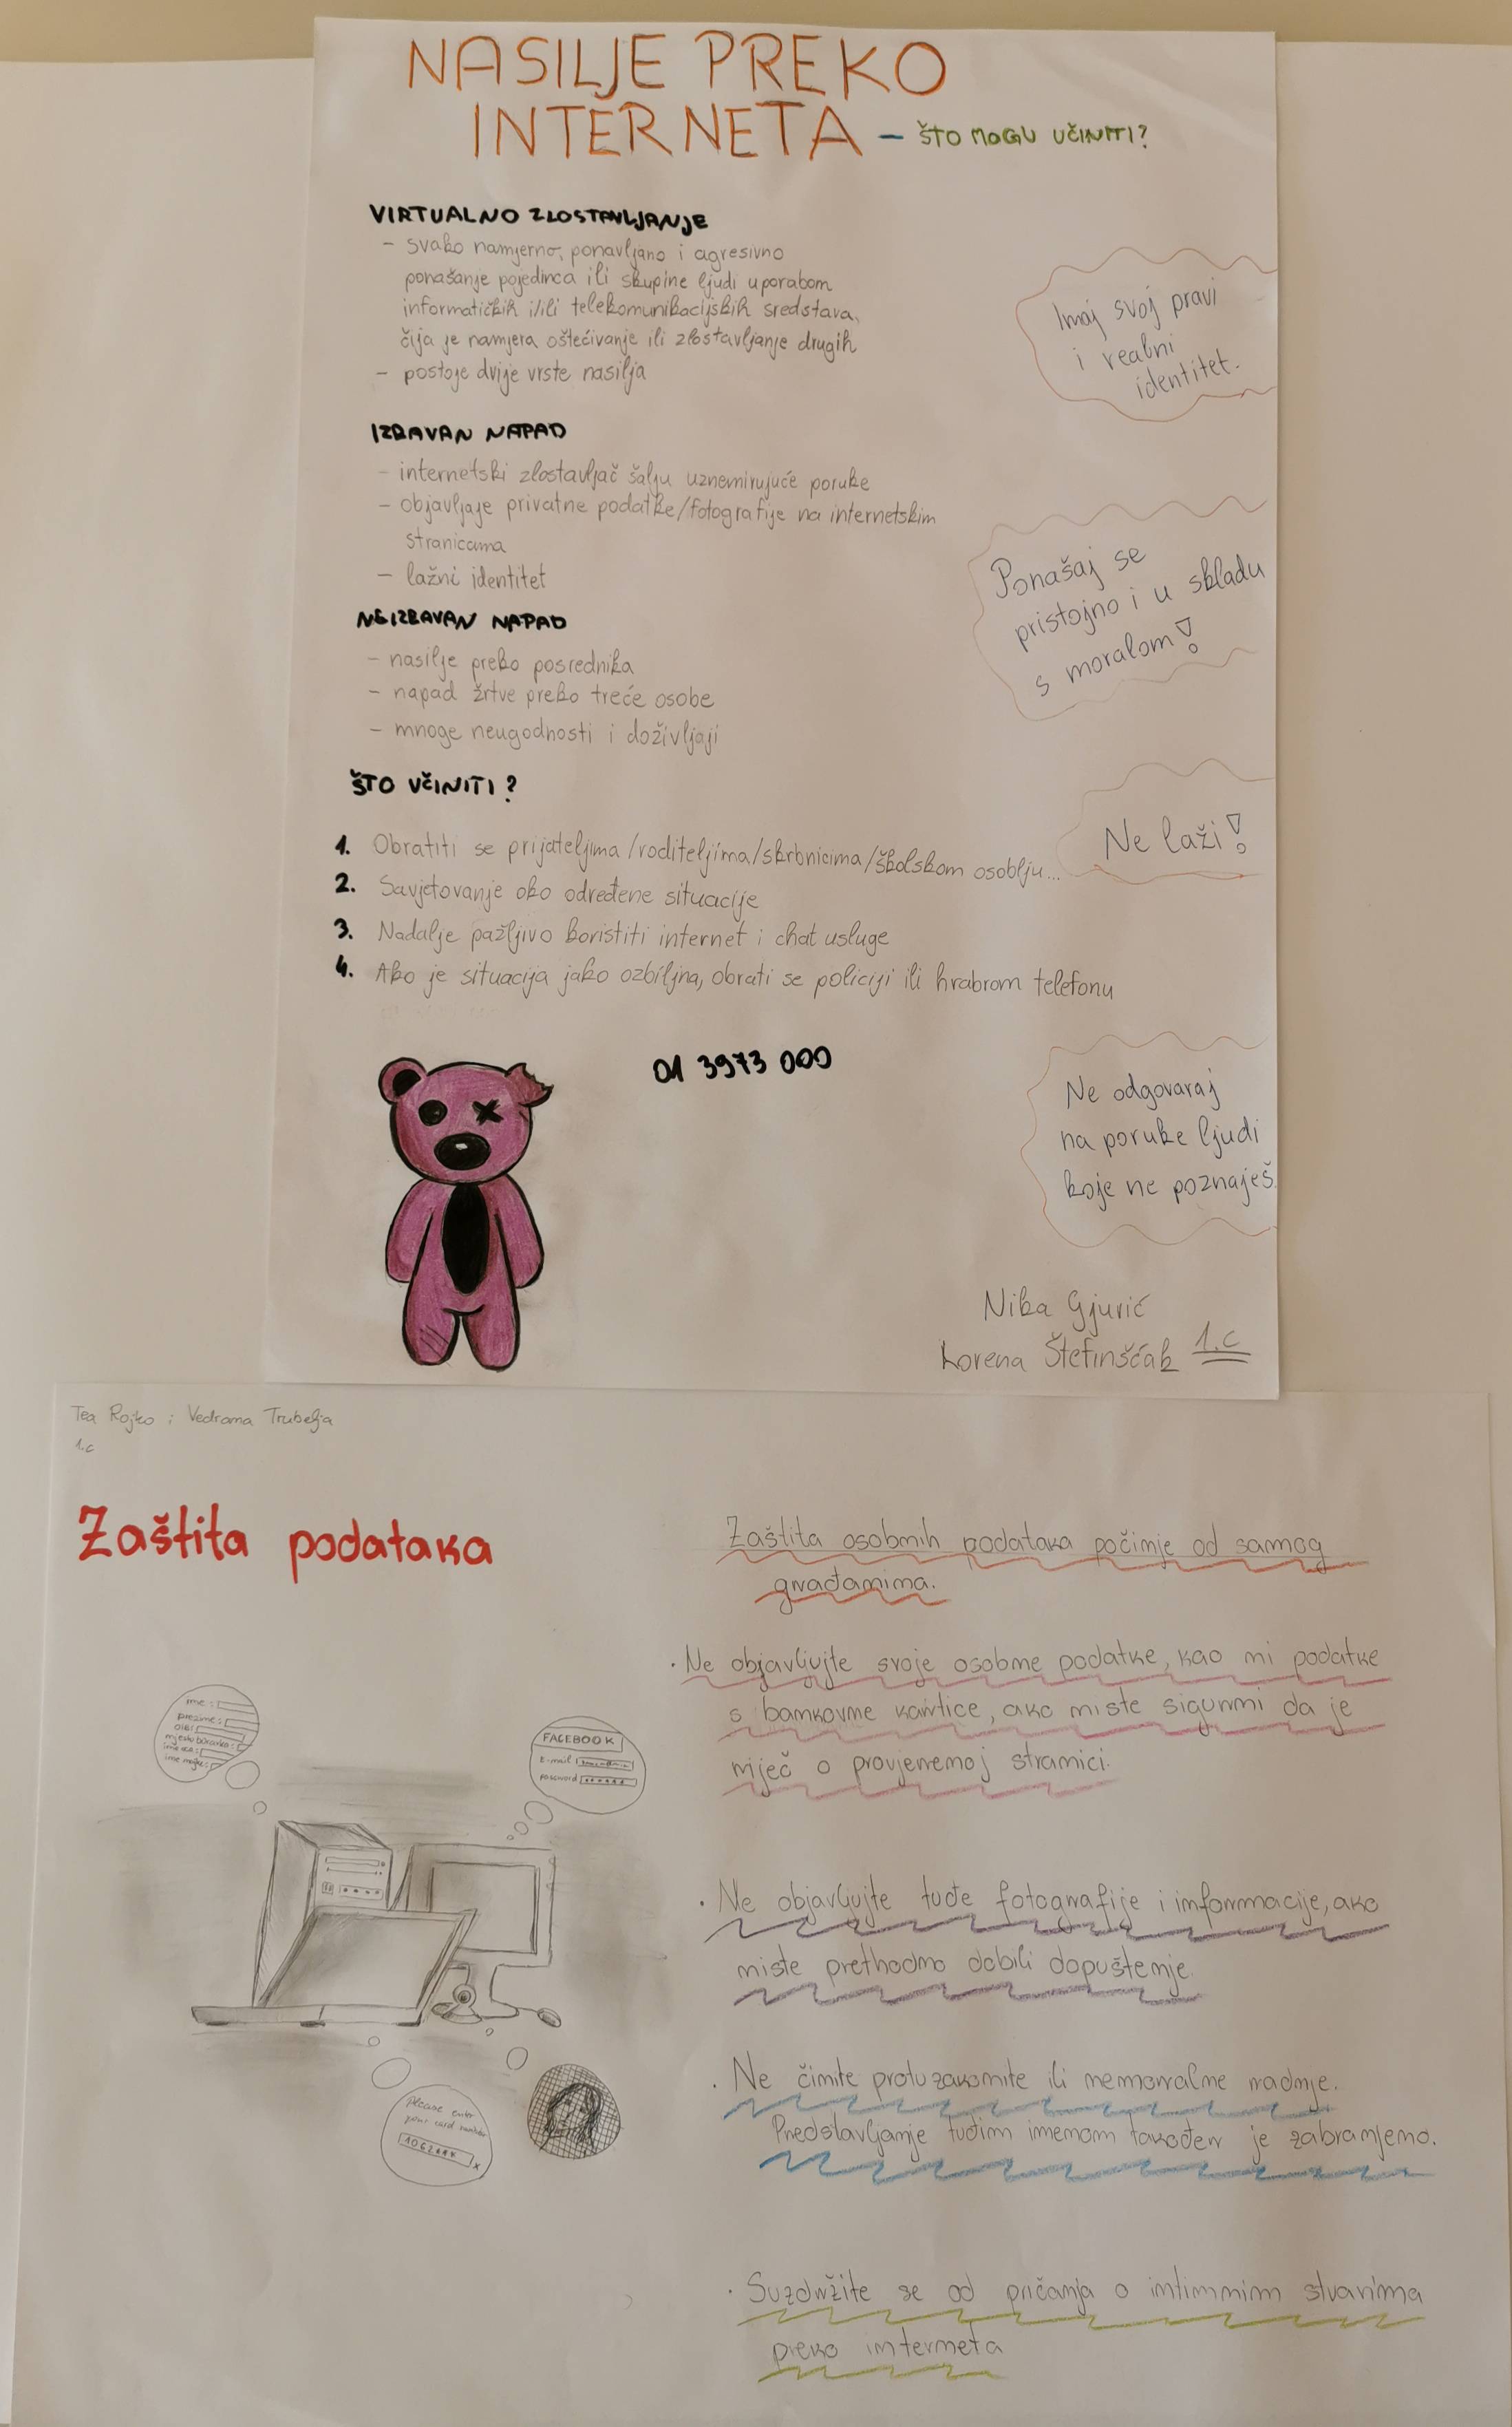 NASILJE PREKO
INTERNETA – ŠTO MOGU UČINITI?
VIRTUALNO ZLOSTAVLJANJE
- svako namjerno, ponavljano i agresivno
ponašanje pojedinca ili skupine ljudi uporabom
informatičkih i/ili telekomunikacijskih sredstava,
čija je namjera oštećivanje ili zlostavljanje drugih
- postoje dvije vrste nasilja
IZRAVAN NAPAD
- internetski zlostavljač šalju uznemirujuće poruke
- objavljaje privatne podatke/fotografije na internetskim
stranicama
- lažni identitet
NEIZRAVAN NAPAD
- nasilje preko posrednika
- napad žrtve preko treće osobe
- mnoge neugodnosti i doživljaji
ŠTO UČINITI?
1. Obratiti se prijateljima/roditeljima/skrbnicima/školskom osoblju...
2. Savjetovanje oko određene situacije
3. Nadalje pažljivo koristiti internet i chat usluge
4. Ako je situacija jako ozbiljna, obrati se policiji ili hrabrom telefonu
01 3973 000
Imaj svoj pravi
i realni
identitet.
Ponašaj se
pristojno i u skladu
s moralom!
Ne laži!
Ne odgovaraj
na poruke ljudi
koje ne poznaješ.
Nika Gjurić
Lorena Štefinšćak 1.c
Tea Rojko i Vedrana Trubelja
1.c
Zaštita podataka
ime:
prezime:
OIB:
mjesto boravka:
ime oca:
ime majke:
FACEBOOK
E-mail
password ******
please enter
your card number
1062***
x
Zaštita osobnih podataka počinje od samog
građanina.
· Ne objavljujte svoje osobne podatke, kao ni podatke
s bankovne kartice, ako niste sigurni da je
riječ o provjerenoj stranici.
· Ne objavljujte tuđe fotografije i informacije, ako
niste prethodno dobili dopuštenje.
· Ne činite protuzakonite ili nemoralne radnje.
Predstavljanje tuđim imenom također je zabranjeno.
· Suzdržite se od pričanja o intimnim stvarima
preko interneta